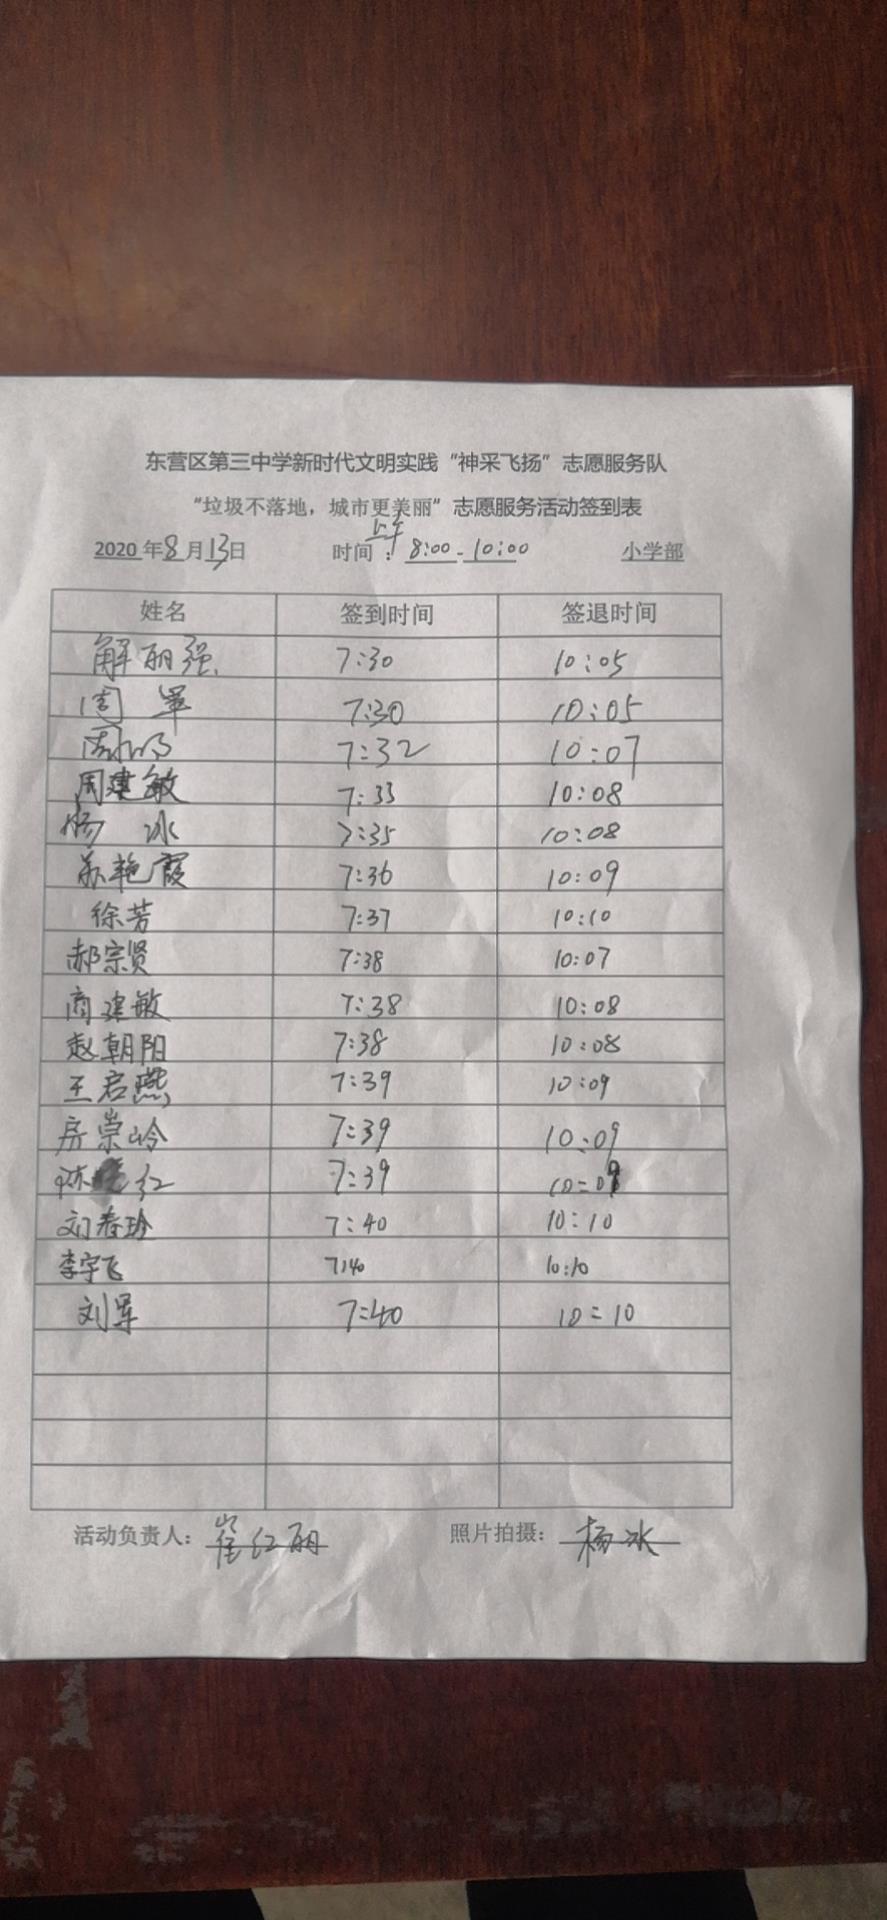 东营区第三中学新时代文明实践“神采飞扬”志愿服务队
“垃圾不落地，城市更美丽”志愿服务活动签到表
2020年8月13日 时间：上午 8:00-10:00 小学部
姓名 签到时间 签退时间
解丽强 7:30 10:05
周 军 7:30 10:05
周 7:32 10:07
周建敏 7:33 10:08
杨 冰 7:35 10:08
苏艳霞 7:36 10:09
徐芳 7:37 10:10
郝宗贤 7:38 10:07
商建敏 7:38 10:08
赵朝阳 7:38 10:08
王启燕 7:39 10:09
房崇岭 7:39 10:09
陈 红 7:39 10:09
刘春玲 7:40 10:10
李宇飞 7:40 10:10
刘军 7:40 10:10
活动负责人：崔红丽 照片拍摄：杨冰